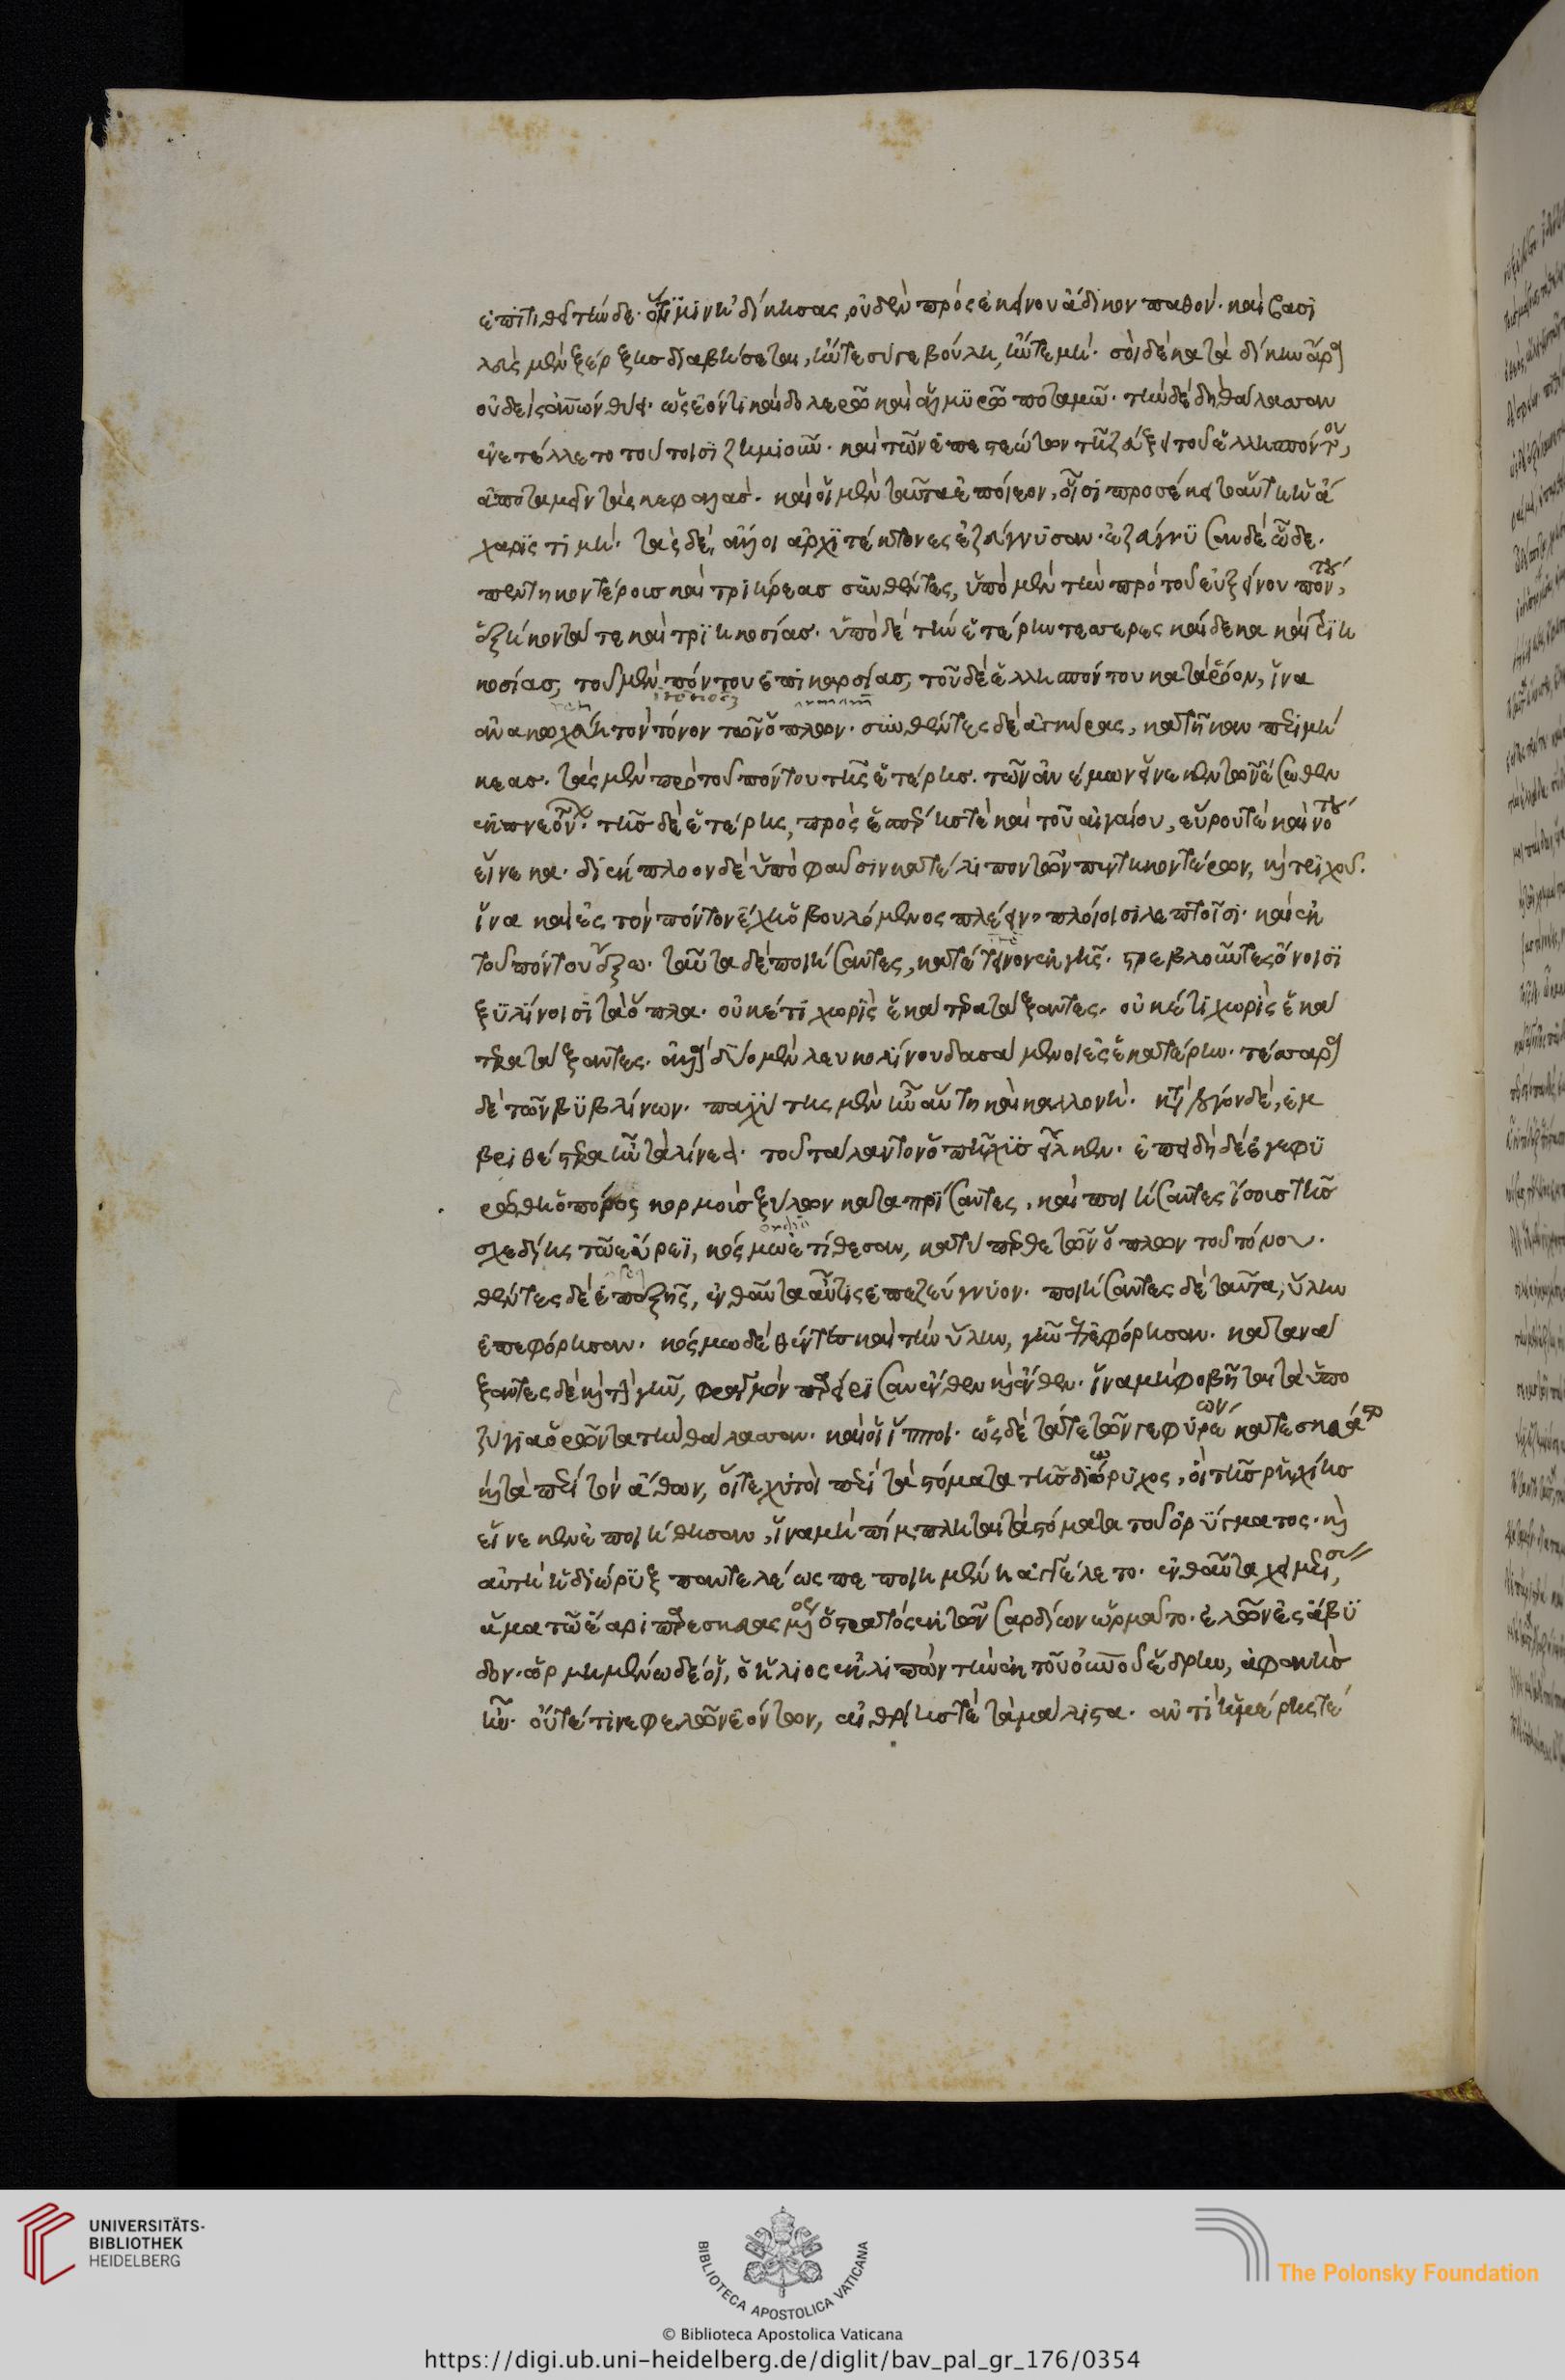 ἐπιτιθεῖ τήνδε· ὅτι μιν ἠδίκησας, οὐδὲν πρὸς ἐκείνου ἄδικον παθόν· καὶ βασι
λεὺς μὲν ξέρξης διαβήσεταί, ἤν τε σύ γε βούλη, ἤν τε μή· σοὶ δὲ κατὰ δίκην ἄρα
οὐδεὶς ἀνθρώπων θύει· ὡς ἐόντι καὶ δολερῶ καὶ ἁλμυρῶ ποταμῶ· τήν δὲ δὴ θάλασσαν
ἐνετέλλετο τούτοισι ζημιοῦν· καὶ τῶν ἐπεστεώτων τῆ ζεύξει τοῦ ἑλλησπόντου,
ἀποταμεῖν τὰς κεφαλάς· καὶ οἱ μὲν ταῦτα ἐποίεον, οἷσι προσέκειτο αὕτη ἡ ἄ
χαρις τιμή· τὰς δὲ, ἄλλοι ἀρχιτέκτονες ἐζεύγνυσαν· ἐζεύγνυσαν δὲ ὧδε·
πεντηκοντέρους καὶ τριήρεας συνθέντες, ὑπὸ μὲν τὴν πρὸ τοῦ εὐξείνου πόντου,
ἑξήκοντά τε καὶ τριηκοσίας· ὑπὸ δὲ τὴν ἑτέρην τεσσερες καίδεκα καὶ τριη
κοσίας, τοῦ μὲν πόντου ἐπικαρσίας, τοῦ δὲ ἑλλησπόντου κατὰ ῥόον, ἵνα
ἀνακωχεύη τὸν τόνον τῶν ὅπλων· συνθέντες δὲ ἀγκύρας, κατῆκαν περιμή
κεας· τὰς μὲν πρὸ τοῦ πόντου τῆς ἑτέρης· τῶν ἀνέμων εἵνεκεν τῶν ἔσωθεν
ἐκπνεόντων· τῆς δὲ ἑτέρης, πρὸς ἑσπέρης τε καὶ τοῦ αἰγαίου, εὔρου τε καὶ νότου
εἵνεκα· διέκπλοον δὲ ὑπόφαυσιν κατέλιπον τῶν πεντηκοντέρων, καὶ τριχοῦ·
ἵνα καὶ ἐς τὸν πόντον ἔχη ὁ βουλόμενος πλέειν πλοίοισι λεπτοῖσι· καὶ ἐκ
τοῦ πόντου ἔξω· ταῦτα δὲ ποιήσαντες, κατέτεινον ἐκ γῆς· στρεβλοῦντες ὄνοισι
ξυλίνοισι τὰ ὅπλα· οὐκέτι χωρὶς ἑκάτερα τάξαντες· οὐκέτι χωρὶς ἑκά
τερα τάξαντες· ἀλλὰ δύο μὲν λευκολίνου δασάμενοι ἐς ἑκατέρην· τέσσαρα
δὲ τῶν βυβλίνων· παχύτης μὲν ἦν αὕτη καὶ καλλονή·
βριθέστερα ἦν τὰ λίνεα· τοῦ τάλαντον ὁ πῆχυς εἷλκεν· ἐπειδὴ δὲ ἐγεφυ
ρώθη ὁ πόρος κορμοὺς ξύλων καταπρίσαντες, καὶ ποιήσαντες ἴσους τῆς
σχεδίης τῶ εὔρεϊ, κόσμω ἐτίθεσαν, κατύπερθε τῶν ὅπλων τοῦ τόνου·
θέντες δὲ ἐπεξῆς, ἐνθαῦτα αὖτις ἐπεζεύγνυον· ποιήσαντες δὲ ταῦτα, ὕλην
ἐπεφόρησαν· κόσμω δὲ θέντες καὶ τὴν ὕλην, γῆν ἐπεφόρησαν· κατανά
ξαντες δὲ καὶ τὴν γῆν, φραγμὸν παρείρυσαν ἔνθεν καὶ ἔνθεν· ἵνα μὴ φοβῆται τὰ ὑπο
ζύγια ὁρῶντα τὴν θάλασσαν· καὶ οἱ ἵπποι· ὡς δὲ τά τε τῶν γεφυρέων κατεσκεύαστο
καὶ τὰ περὶ τὸν ἄθων, οἵ τε χυτοὶ περὶ τὰ στόματα τῆς διώρυχος, οἱ τῆς ῥηχίης
εἵνεκεν ἐποιήθησαν, ἵνα μὴ πίμπληται τὰ στόματα τοῦ ὀρύγματος· καὶ
αὐτὴ ἡ διώρυξ παντελέως πεποιημένη ἀγγέλετο· ἐνθαῦτα χειμερίσας,
ἅμα τῶ ἔαρι παρεσκευασμένος ὁ στρατὸς ἐκ τῶν σαρδίων ὡρμᾶτο· ἐλῶν ἐς ἄβυ
δον· ὡρμημένω δέ οἱ, ὁ ἥλιος ἐκλιπὼν τὴν ἐκ τοῦ οὐρανοῦ ἕδρην, ἀφανὴς
ἦν· οὔτέ τι νεφελῶν ἐόντων, αἰθρίης τὲ τὰ μάλιστα· ἀντὶ ἡμέρης τὲ
UNIVERSITÄTS-
BIBLIOTHEK
HEIDELBERG
BIBLIOTHECA APOSTOLICA VATICANA
The Polonsky Foundation
© Biblioteca Apostolica Vaticana
https://digi.ub.uni-heidelberg.de/diglit/bav_pal_gr_176/0354